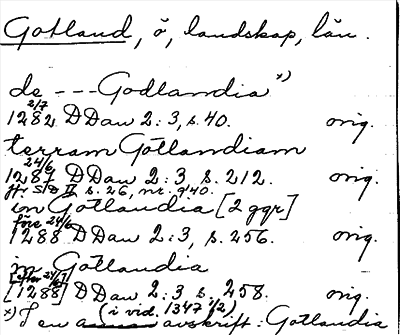 Gotland, ö, landskap, län.
de --- Godlandia x)
2/7
1282 DDan 2:3, s. 40. orig.
terram Gotlandiam
24/6
1287 DDan 2:3 s. 212. orig.
jfr SD II s. 26, nr. 940.
in Gotlandia [2 ggr]
före 24/6
1288 DDan 2:3, s. 256. orig.
in Gotlandia
[efter 24/6?]
[1288] DDan 2:3 s. 258. orig.
(i vid. 1347 1/2)
x) I en avskrift: Gotlandia